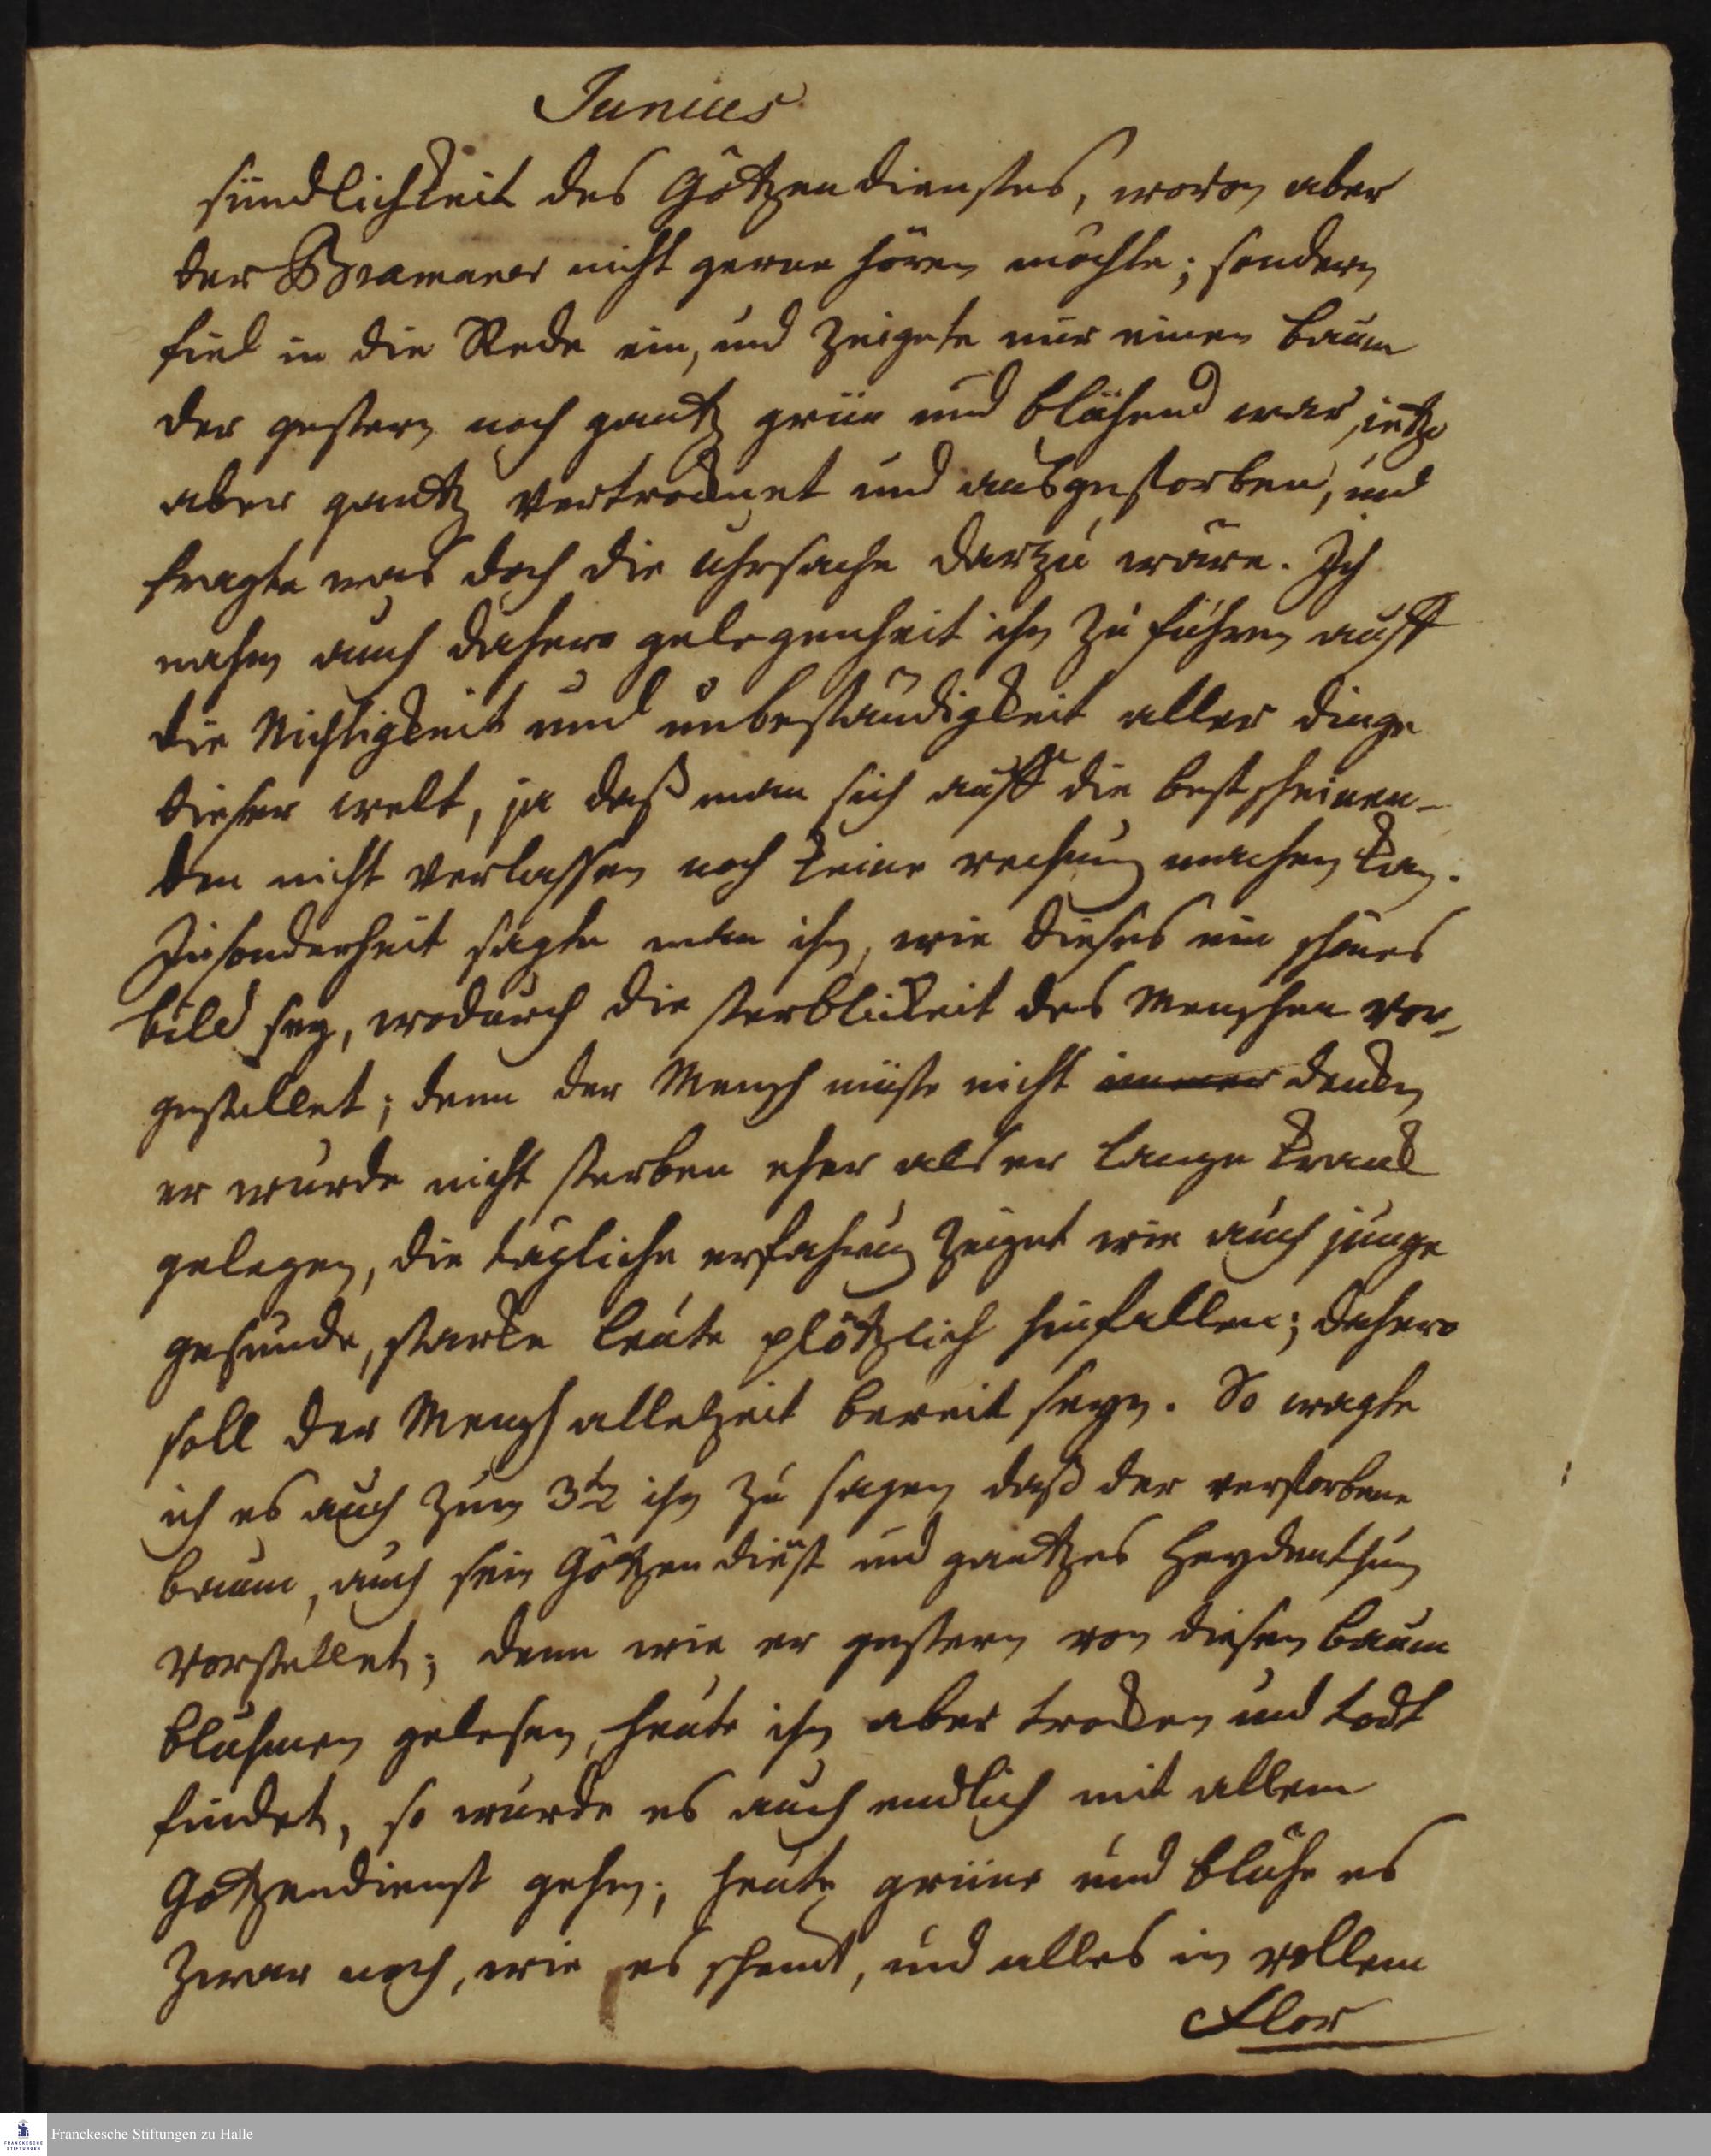 Junius
sündlichkeit des Götzendienstes, wovon aber
der Bramaner nicht gerne hören mochte; sondern
fiel in die Rede ein, und zeigete mir einen baum
der gestern noch gantz grün und blühend war, jetzo
aber gantz vertrocknet und ausgestorben, und
fragte was doch die uhrsache darzu wäre. Ich
nahm auch dahero gelegenheit ihn zu führen auff
die Nichtigkeit und unbeständigkeit aller dinge
dieser welt, ja daß man sich auff die bestscheinen-
den nicht verlassen noch keine rechnung machen kan.
Insonderheit sagte man ihm, wie dieses ein schönes
bild sey, wodurch die sterblickeit des Menschen vor-
gestellet; denn der Mensch müste nicht immer dencken
er wurde nicht sterben eher als er lange kranck
gelegen, die tägliche erfahrung zeiget wie auch junge
gesunde, starke leute plötzlich hinfallen; dahero
soll der Mensch allezeit bereit seyn. So wagte
ich es auch zum 3ten ihm zu sagen daß der verstorbene
baum, auch sein Götzendienst und gantzes Heydenthum
vorstellet; denn wie er gestern von diesem baum
bluhmen gelesen, heute ihn aber trocken und todt
findet, so würde es auch endlich mit allem
Götzendienst gehen; heute grüne und blühe es
zwar noch, wie es scheint, und alles in vollem
Flor
Franckesche Stiftungen zu Halle